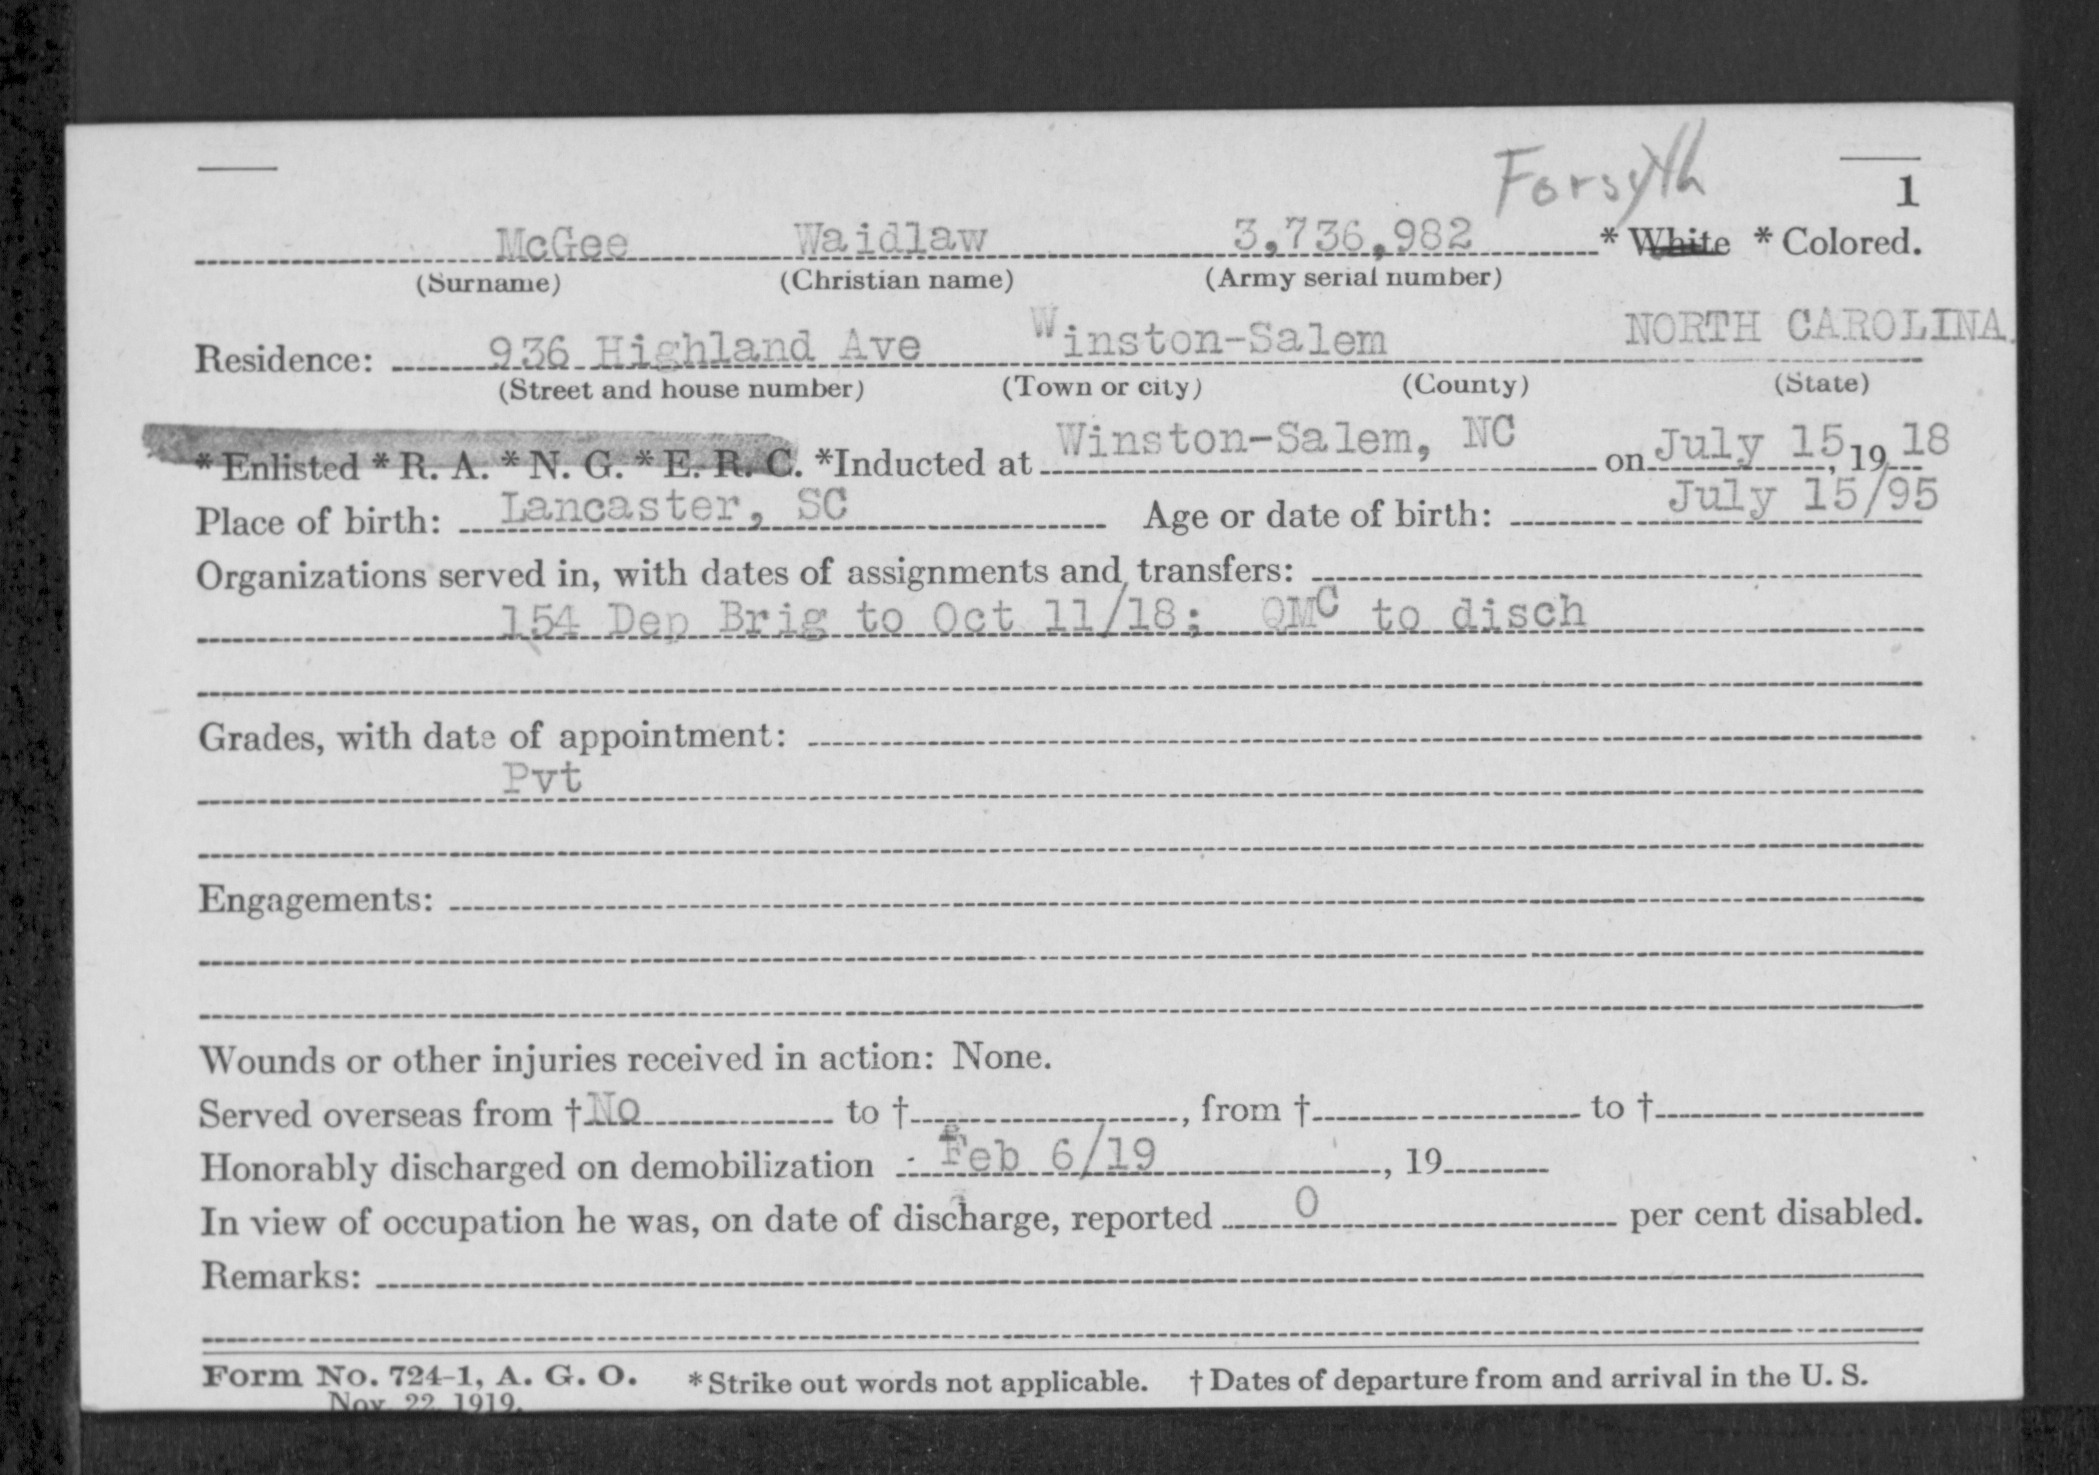 Forsyth
1
McGee Waidlaw 3,736,982 * White * Colored.
(Surname) (Christian name) (Army serial number)
Residence: 936 Highland Ave Winston-Salem NORTH CAROLINA.
(Street and house number) (Town or city) (County) (State)
* Enlisted * R. A. * N. G. * E. R. C. *Inducted at Winston-Salem, NC on July 15, 19 18
Place of birth: Lancaster, SC Age or date of birth: July 15/95
Organizations served in, with dates of assignments and transfers:
154 Dep Brig to Oct 11/18; QMC to disch
Grades, with date of appointment:
Pvt
Engagements:
Wounds or other injuries received in action: None.
Served overseas from † No to †, from † to †
Honorably discharged on demobilization Feb 6/19, 19
In view of occupation he was, on date of discharge, reported 0 per cent disabled.
Remarks:
Form No. 724-1, A. G. O. * Strike out words not applicable. † Dates of departure from and arrival in the U. S.
Nov. 22, 1919.